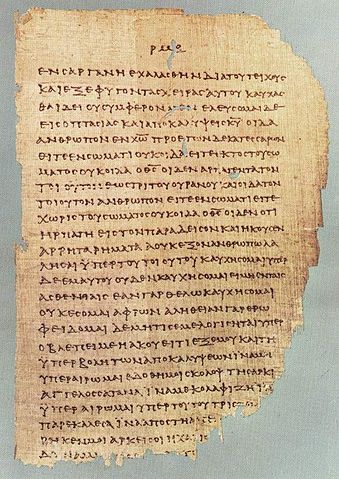 ΕΝϹΑΡΓΑΝΗΕΧΑΛΑϹΘΗΝΔΙΑΤΟΥΤΕΙΧΟΥϹ
ΚΑΙΕΞΕΦΥΓΟΝΤΑϹΧΕΙΡΑϹΑΥΤΟΥΚΑΥΧΑϹ
ΘΑΙΔΕΙΟΥϹΥΜΦΕΡΟΝΜΕΝΕΛΕΥϹΟΜΑΙΔΕ
ΕΙϹΟΠΤΑϹΙΑϹΚΑΙΑΠΟΚΑΛΥΨΕΙϹΚ̅Υ̅ΟΙΔΑ
ΑΝΘΡΩΠΟΝΕΝΧ̅Ω̅ΠΡΟΕΤΩΝΔΕΚΑΤΕϹϹΑΡΩΝ
ΕΙΤΕΕΝϹΩΜΑΤΙΟΥΚΟΙΔΑΕΙΤΕΕΚΤΟϹΤΟΥϹΩ
ΜΑΤΟϹΟΥΚΟΙΔΑΟΘ̅Ϲ̅ΟΙΔΕΝΑΡΠΑΓΕΝΤΑΤΟΝ
ΤΟΙΟΥΤΟΝΕΩϹΤΡΙΤΟΥΟΥΡΑΝΟΥΚΑΙΟΙΔΑΤΟΝ
ΤΟΙΟΥΤΟΝΑΝΘΡΩΠΟΝΕΙΤΕΕΝϹΩΜΑΤΙΕΙΤΕ
ΧΩΡΙϹΤΟΥϹΩΜΑΤΟϹΟΥΚΟΙΔΑΟΘ̅Ϲ̅ΟΙΔΕΝΟΤΙ
ΗΡΠΑΓΗΕΙϹΤΟΝΠΑΡΑΔΕΙϹΟΝΚΑΙΗΚΟΥϹΕΝ
ΑΡΡΗΤΑΡΗΜΑΤΑΑΟΥΚΕΞΟΝΑΝΘΡΩΠΩΛΑ
ΛΗϹΑΙΥΠΕΡΤΟΥΤΟΙΟΥΤΟΥΚΑΥΧΗϹΟΜΑΙΥΠΕΡ
ΔΕΕΜΑΥΤΟΥΟΥΔΕΝΚΑΥΧΗϹΟΜΑΙΕΙΜΗΕΝΤΑΙϹ
ΑϹΘΕΝΕΙΑΙϹΕΑΝΓΑΡΘΕΛΩΚΑΥΧΗϹΟΜΑΙ
ΟΥΚΕϹΟΜΑΙΑΦΡΩΝΑΛΗΘΕΙΑΝΓΑΡΕΡΩ
ΦΕΙΔΟΜΑΙΔΕΜΗΤΙϹΕΜΕΛΟΓΙϹΗΤΑΙΥΠΕΡ
ΟΒΛΕΠΕΙΜΕΗΑΚΟΥΕΙΤΙΕΞΕΜΟΥΚΑΙΤΗ
ΥΠΕΡΒΟΛΗΤΩΝΑΠΟΚΑΛΥΨΕΩΝΙΝΑΜΗ
ΥΠΕΡΑΙΡΩΜΑΙΕΔΟΘΗΜΟΙϹΚΟΛΟΨΤΗϹΑΡΚΙ
ΑΓΓΕΛΟϹϹΑΤΑΝΑΙΝΑΜΕΚΟΛΑΦΙΖΗΙ
ΥΠΕΡΑΙΡΩΜΑΙΥΠΕΡΤΟΥΤΟΥΤΡΙϹ
ΠΑΡΕΚΑΛΕϹΑΙΝΑΑΠΟϹΤΗ
ΡΗΚΕΝΜΟΙΑΡΚΕΙϹΟΙΗΧΑΡΙϹ